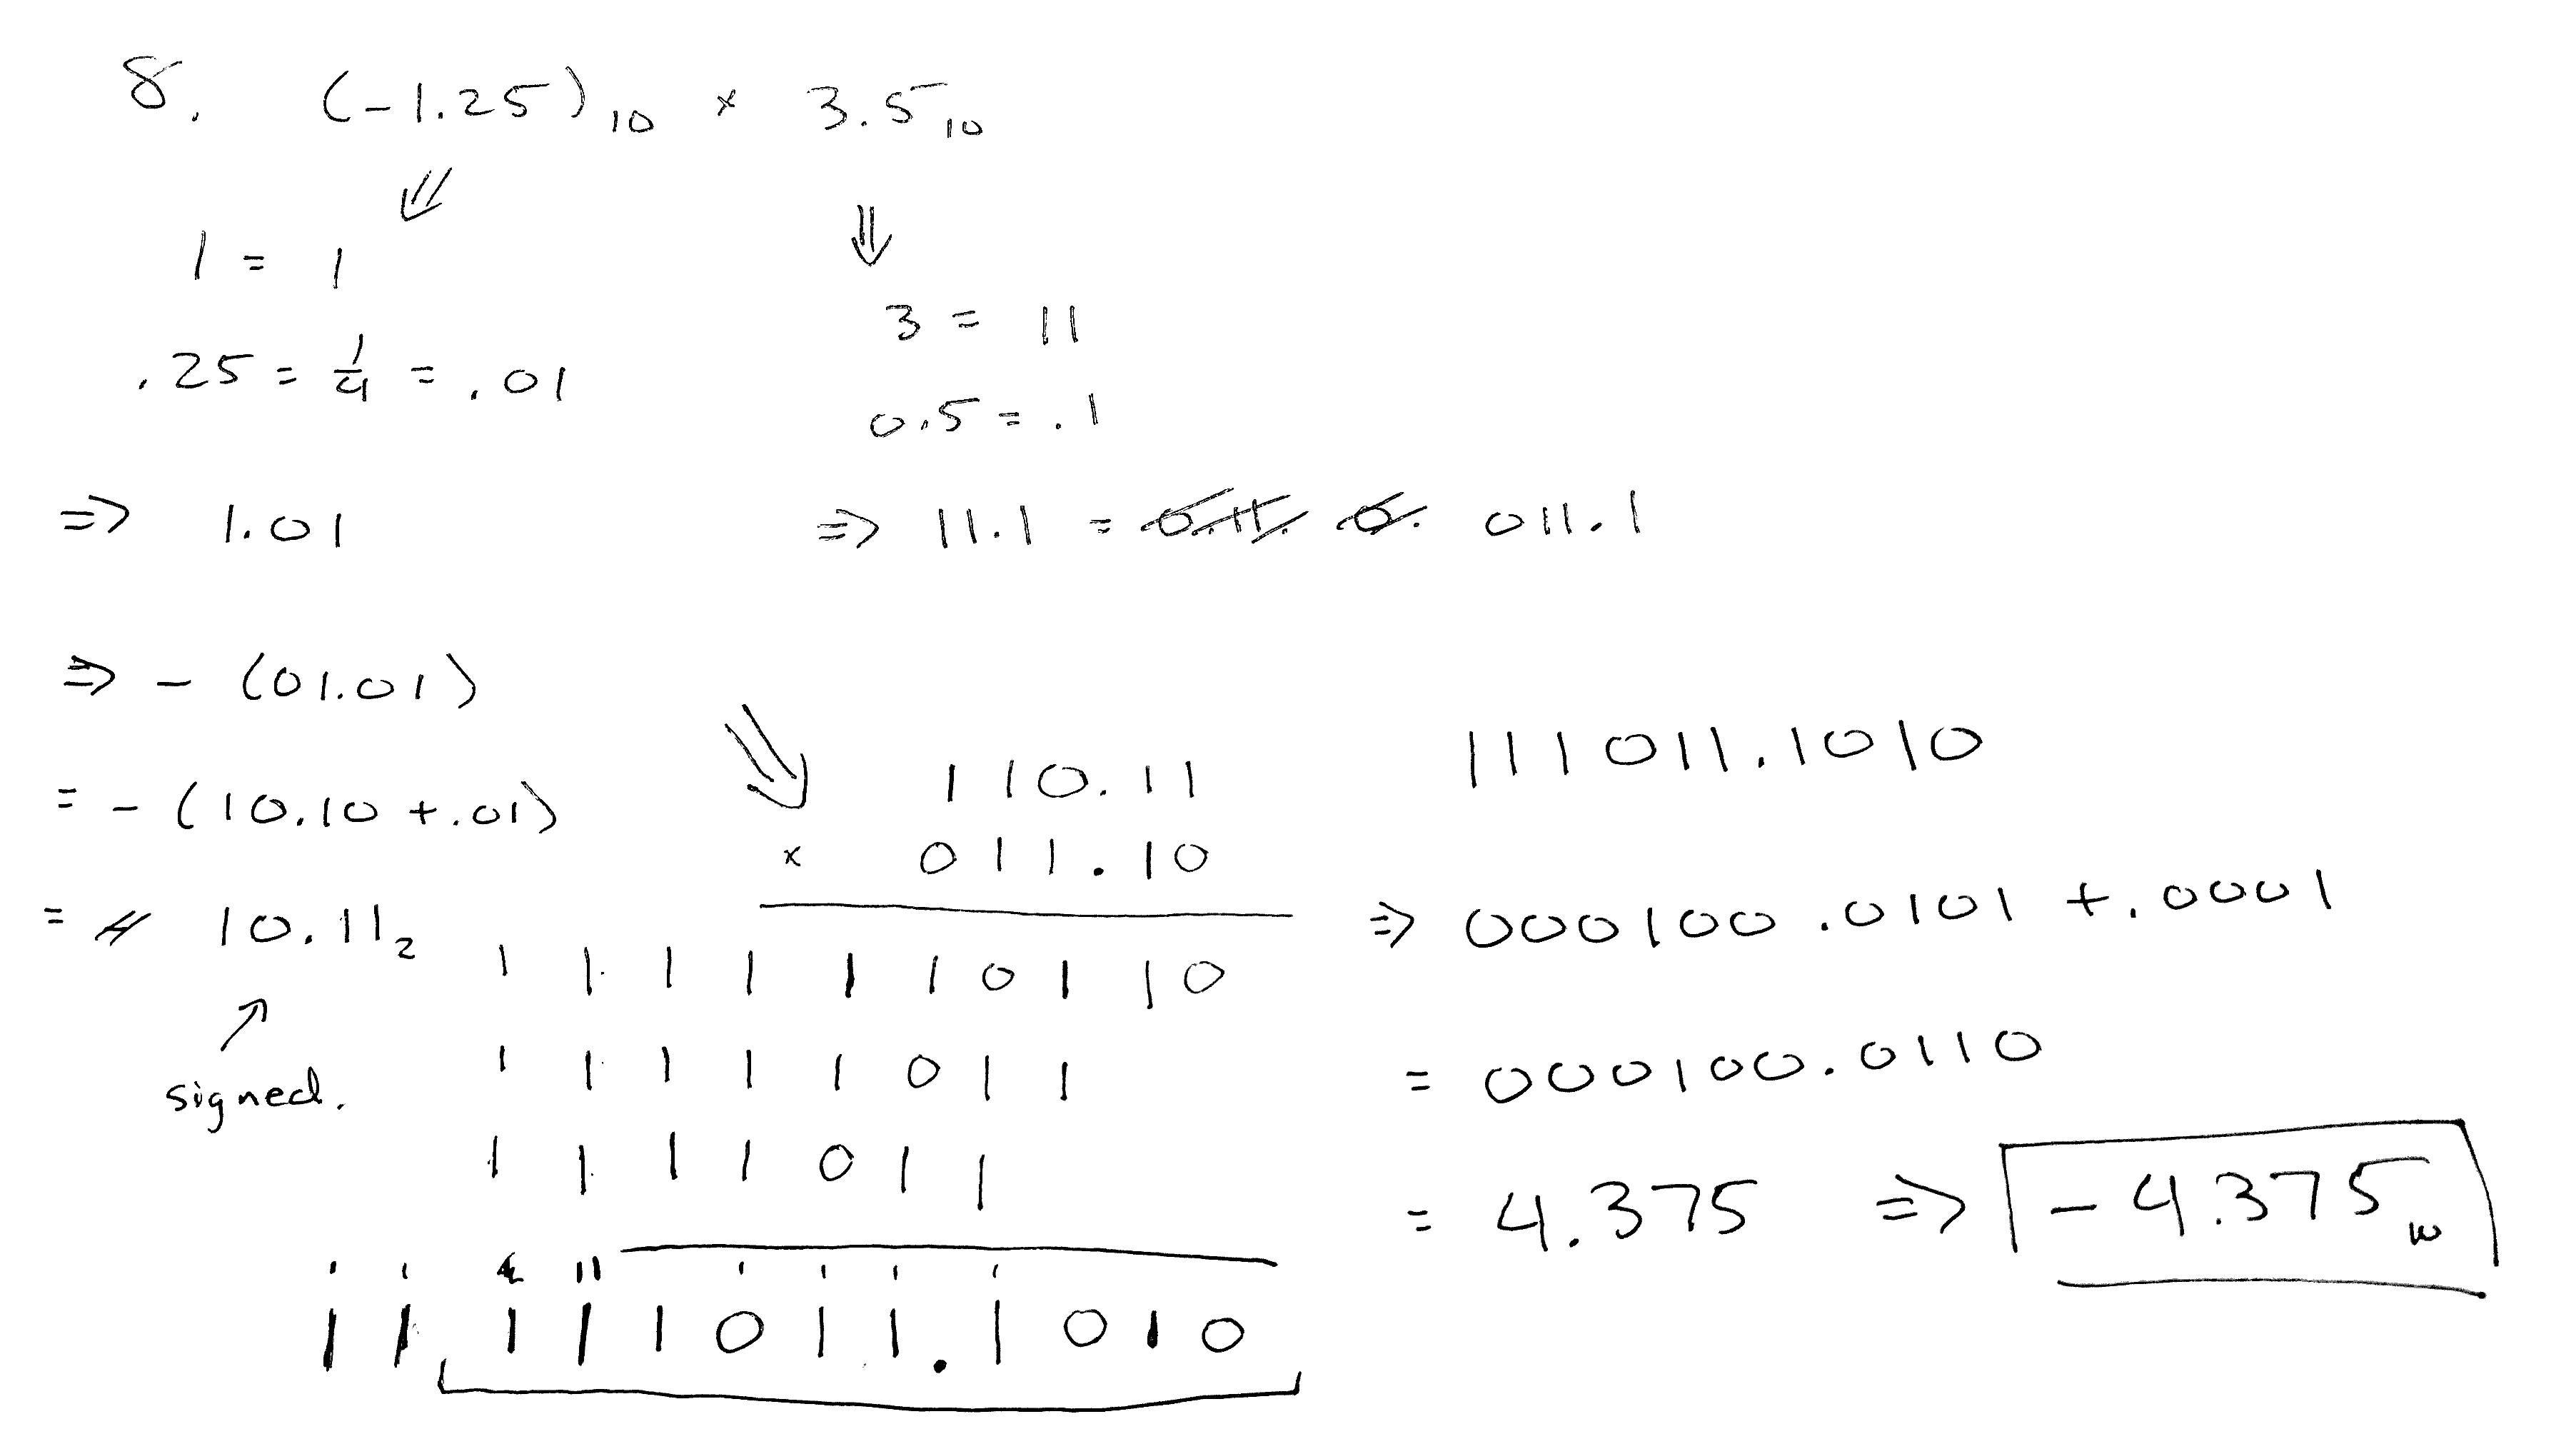 8. (-1.25)₁₀ × 3.5₁₀
⇓
1 = 1
.25 = 1/4 = .01
⇒ 1.01
⇒ - (01.01)
= - (10.10 + .01)
= 10.11₂
↗
signed.
⇓
3 = 11
0.5 = .1
⇒ 11.1 = 011.1
⇓
110.11
× 011.10
1 1 1 1 1 1 0 1 1 0
1 1 1 1 1 0 1 1
1 1 1 1 0 1 1
1 1 1 1 1 0 1 1 . 1 0 1 0
111011.1010
⇒ 000100.0101 + .0001
= 000100.0110
= 4.375 ⇒ -4.375₁₀